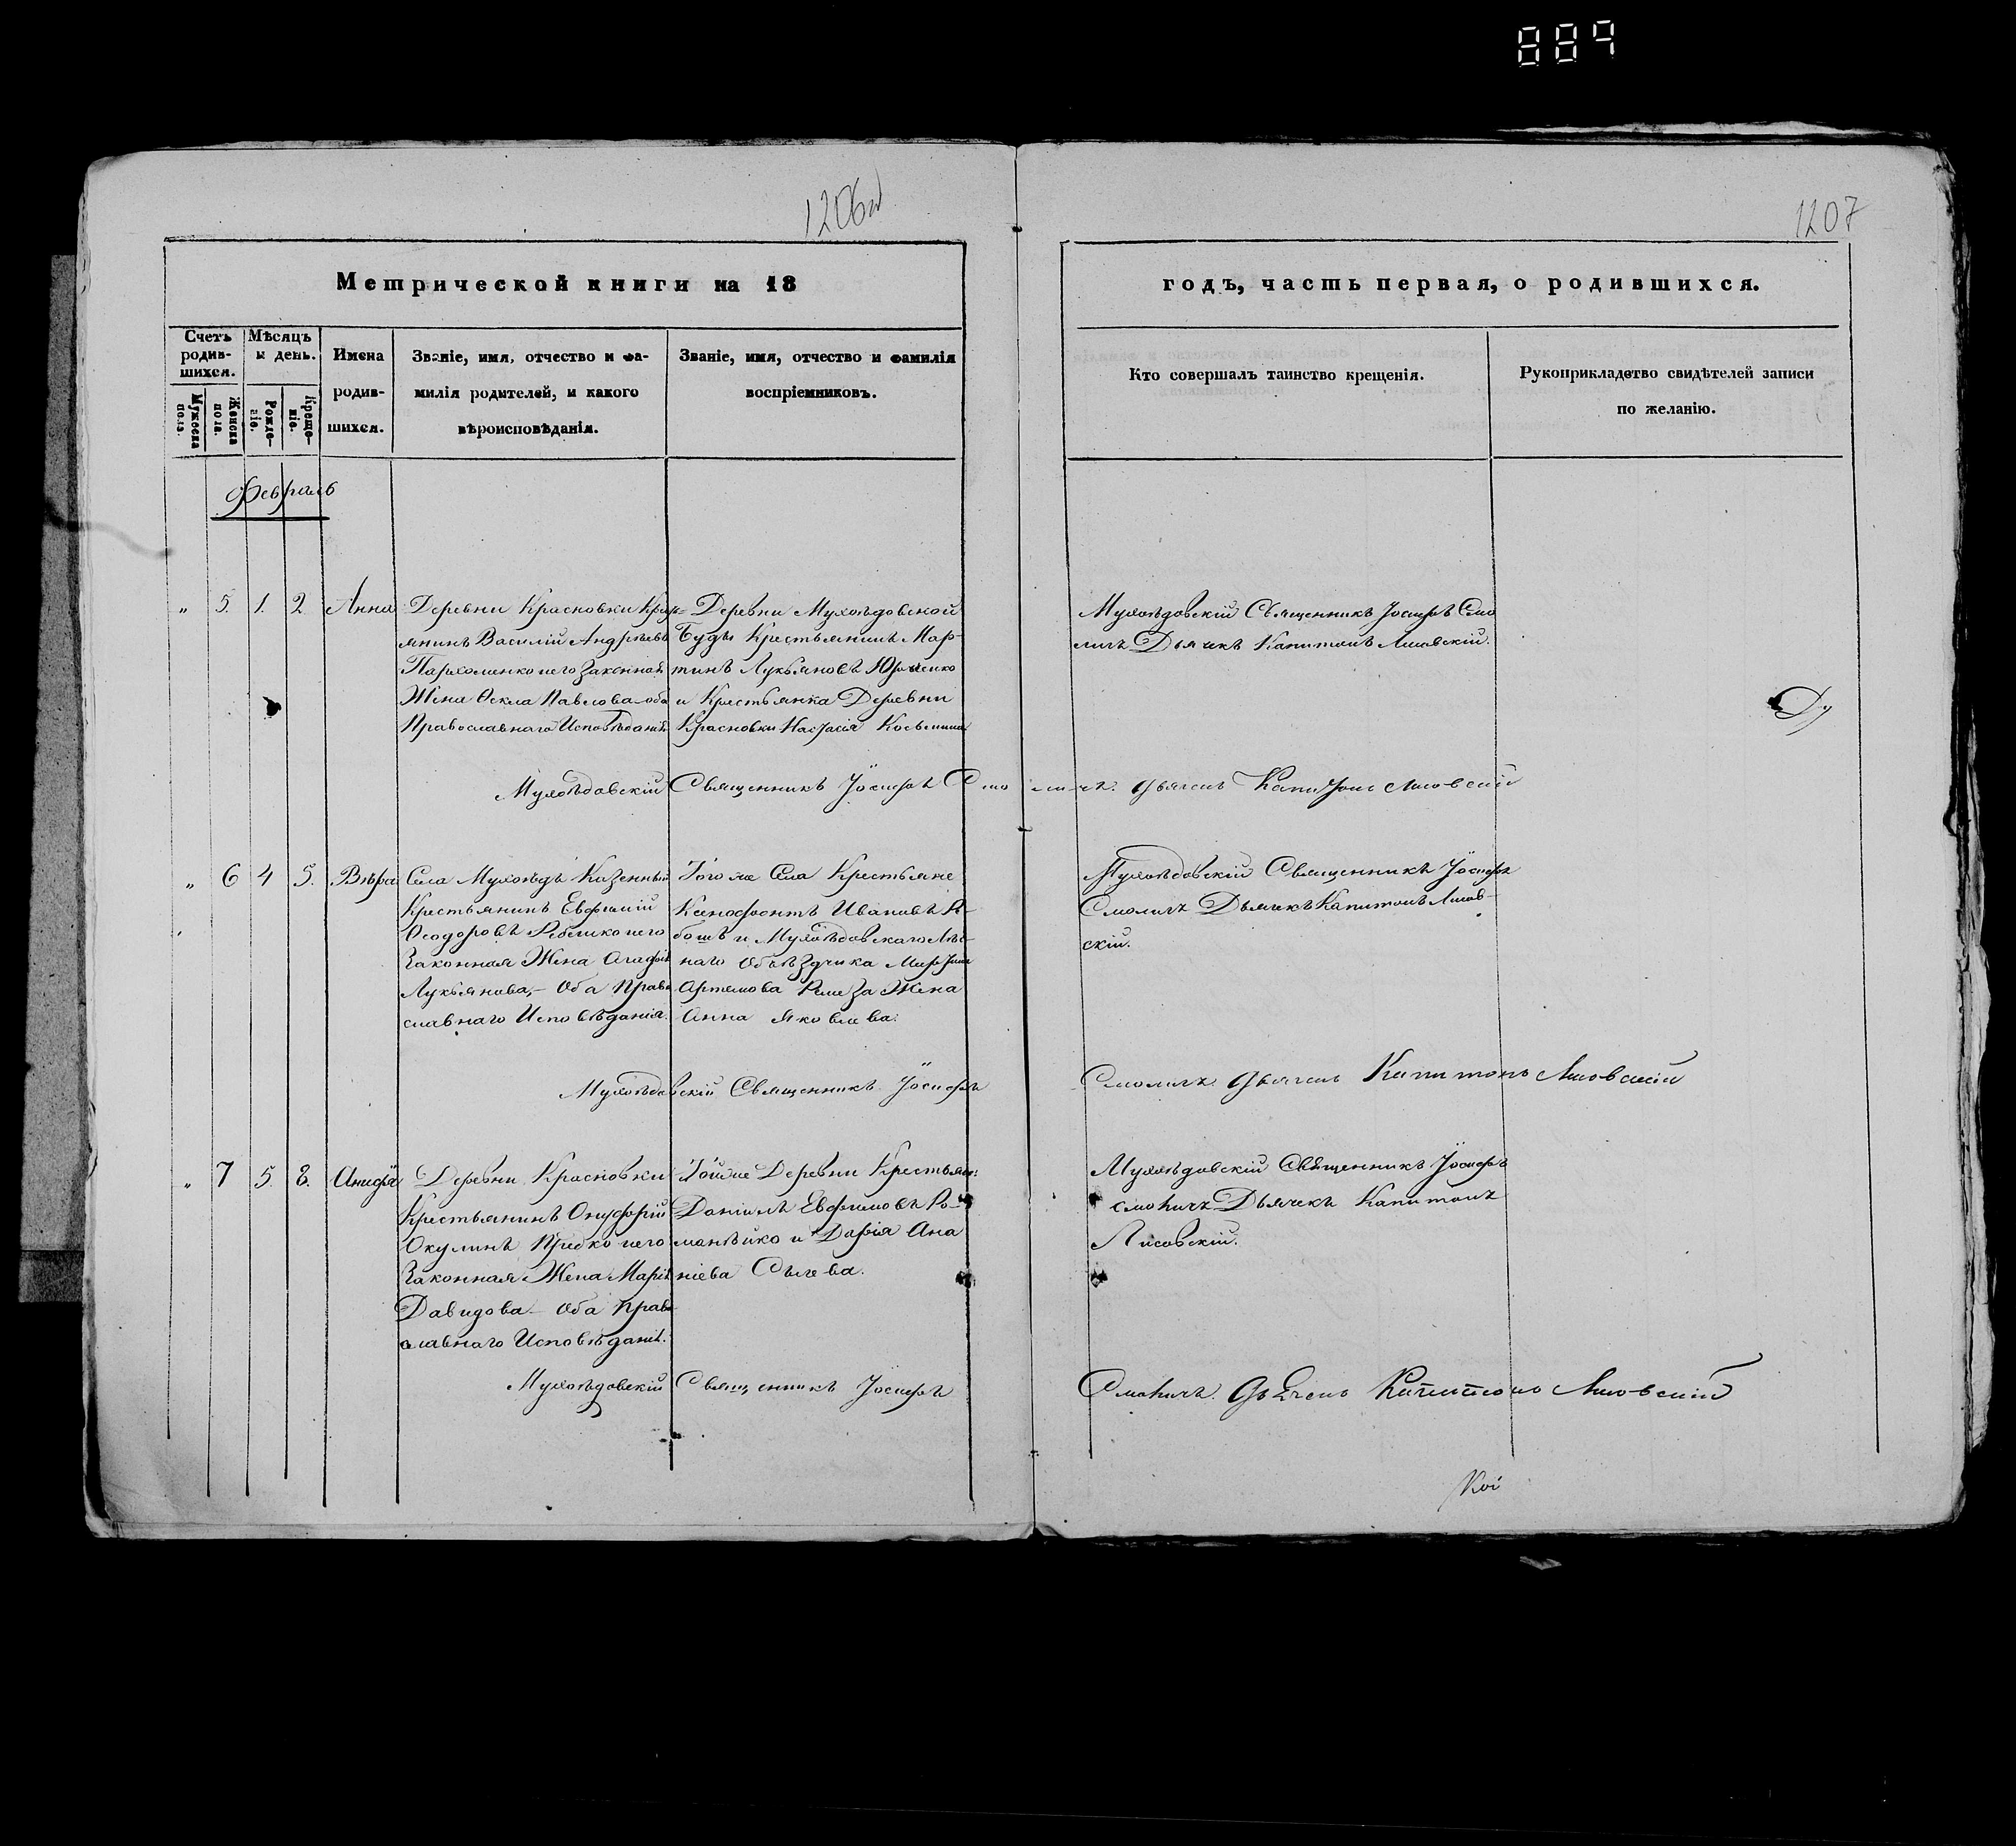 889
1206
1207
Метрической книги на 18
годъ, часть первая, о родившихся.
Счетъ родив-шихся.
Мужеска пола.
Женска пола.
Мѣсяцъ и день.
Рожде-ніе.
Креще-ніе.
Имена родив-шихся.
Званіе, имя, отчество и фа-
милія родителей, и какого
вѣроисповѣданія.
Званіе, имя, отчество и фамилія
воспріемниковъ.
Кто совершалъ таинство крещенія.
Рукоприкладство свидѣтелей записи
по желанію.
Февраль
" 5. 1. 2. Анна
Деревни Красновки Крес-
янинъ Василій Андреевъ
Пархоменко и его законная
Жена Ѳекла Павлова оба
Православнаго Исповѣданія
Деревни Мухоѣдовской
Буды Крестьянинъ Мар-
тинъ Лукьяновъ
и Крестьянка Деревни
Красновки Настасія
Мухоѣдовскій Священникъ Іосифъ Смо
личъ Дьячекъ Капитонъ Лисовскій.
Мухоѣдовскій Священникъ Іосифъ Смоличъ. Дьячекъ Капитонъ Лисовскій
" 6 4 5. Вѣра
Села Мухоѣдъ Казенный
Крестьянинъ Евфимій
Ѳеодоровъ и его
Законная Жена Агафія
Лукьянова, – Оба Право
славнаго Исповѣданія.
Того же Села Крестьяне
Ксенофонтъ Ивановъ
и Мухоѣдовскаго Лѣс-
наго Объѣздчика
Артемова Ремеза Жена
Анна Яковлева.
Мухоѣдовскій Священникъ Іосифъ
Смоличъ Дьячекъ Капитонъ Лисов-
скій.
Мухоѣдовскій Священникъ Іосифъ Смоличъ. Дьячекъ Капитонъ Лисовскій
" 7 5. 8. Анисія
Деревни Красновки
Крестьянинъ Онуфрій
и его
Законная Жена Марія
Давидова – Оба Право
славнаго Исповѣданія.
Тойже Деревни Крестьян:
Даніилъ Евфимовъ Ро-
манѣйко и Дарія Ана
ніева Сычева.
Мухоѣдовскій Священникъ Іосифъ
Смоличъ Дьячекъ Капитонъ
Лисовскій.
Мухоѣдовскій Священникъ Іосифъ Смоличъ. Дьячекъ Капитонъ Лисовскій